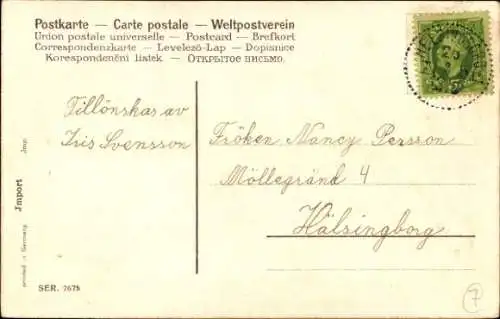 Postkarte — Carte postale — Weltpostverein
Union postale universelle — Postcard — Brefkort
Correspondenzkarte — Levelező-Lap — Dopisnice
Korespondenční lístek — Открытое письмо.
Tillönskas av
Iris Svensson
Fröken Nancy Persson
Möllegränd 4
Hälsingborg
Imp.
Jmport
printed in Germany
SER. 7675
7